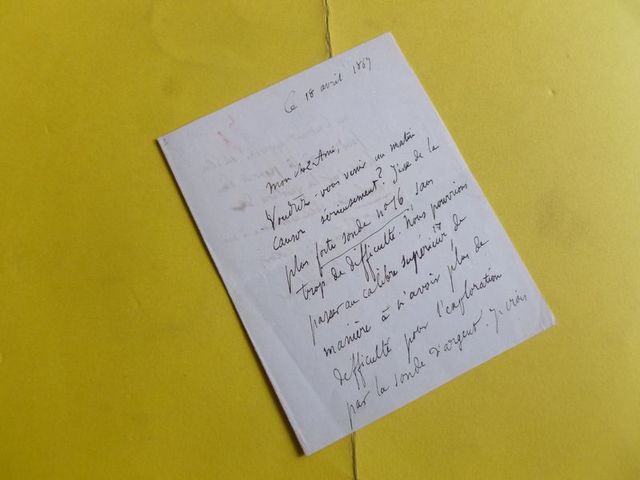 Ce 18 avril 1867
Mon cher Ami,
Voudriez-vous venir un matin
causer sérieusement? J'use de la
plus forte sonde n° 16 sans
trop de difficulté. Nous pourrions
passer au calibre supérieur de
manière à n'avoir plus de
difficulté pour l'exploration
par la sonde d'argent. Je crois